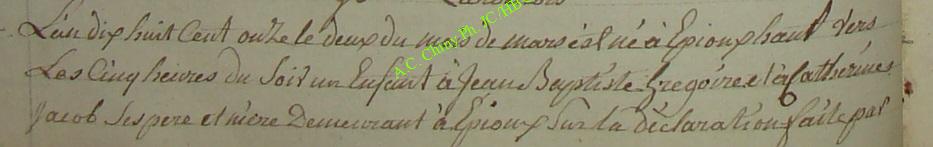 L'an dix huit Cent onze le deux du mois de mars est né à Epioux haut vers
Les Cinq heures du Soir un Enfant à Jean Baptiste Gregoire et à Catherine
Jacob Ses pere et mère Demeurant à Epioux Sur la déclaration faite par
A.C. Chiny Ph. JC/HB